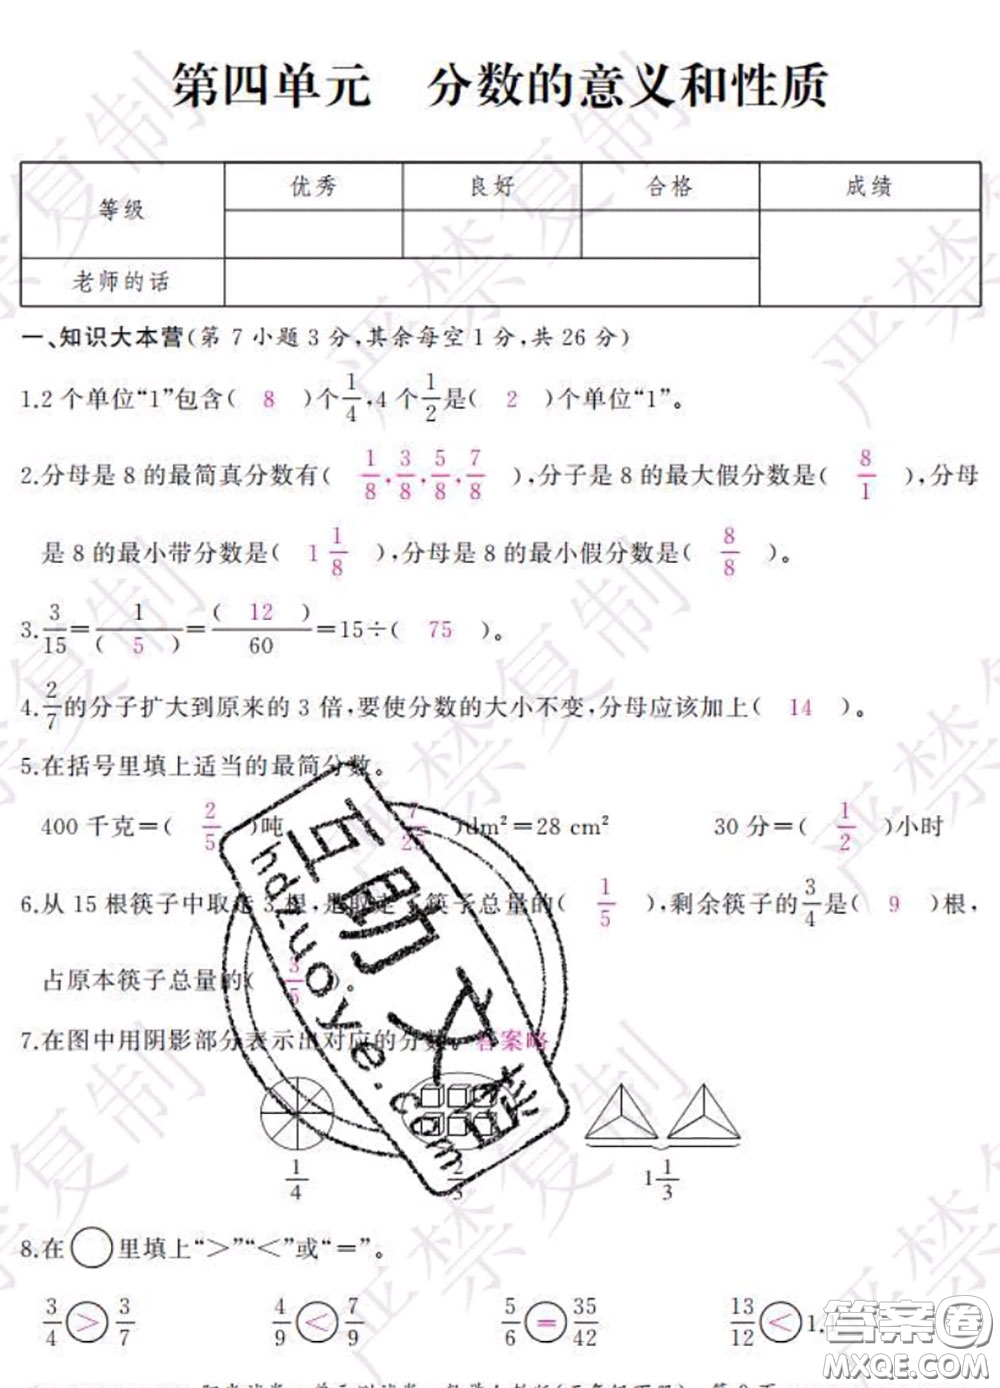 第四单元 分数的意义和性质
等级 优秀 良好 合格 成绩
老师的话
一、知识大本营(第 7 小题 3 分,其余每空 1 分,共 26 分)
1.2 个单位“1”包含( 8 )个1/4,4 个1/2是( 2 )个单位“1”。
2.分母是 8 的最简真分数有( 1/8,3/8,5/8,7/8 ),分子是 8 的最大假分数是( 8/1 ),分母
是 8 的最小带分数是( 1 1/8 ),分母是 8 的最小假分数是( 8/8 )。
3.3/15=1/( 5 )=( 12 )/60=15÷( 75 )。
4.2/7的分子扩大到原来的 3 倍,要使分数的大小不变,分母应该加上( 14 )。
5.在括号里填上适当的最简分数。
400 千克=( 2/5 )吨 ( 7/25 )dm²=28 cm² 30 分=( 1/2 )小时
6.从 15 根筷子中取走 3 根,是取走了筷子总量的( 1/5 ),剩余筷子的3/4是( 9 )根,
占原本筷子总量的( 3/5 )。
7.在图中用阴影部分表示出对应的分数。答案略
1/4 2/3 1 1/3
8.在○里填上“>”“<”或“=”。
3/4 > 3/7 4/9 < 7/9 5/6 = 35/42 13/12 < 1.
互助文
hdzuoye.com
答案卷
MXQE.COM
严禁复制